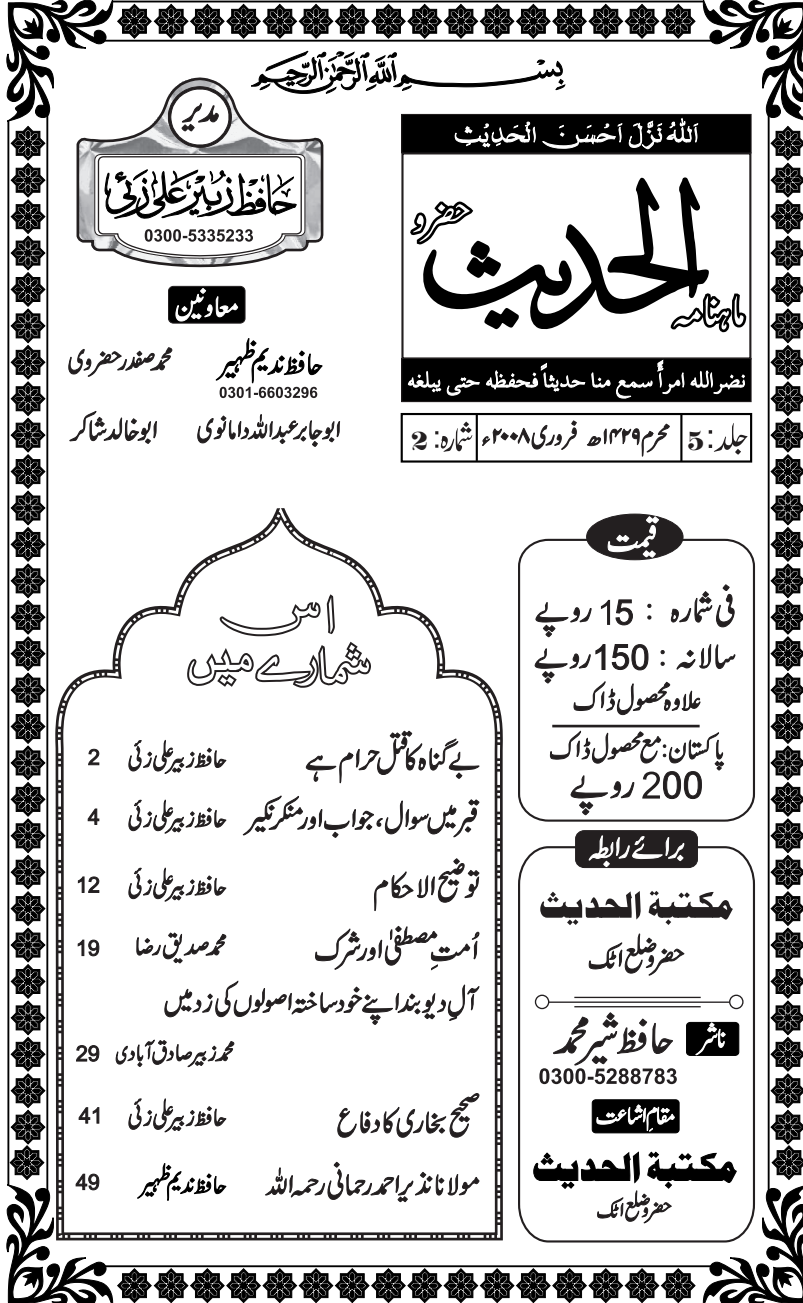 بِسْمِ اللهِ الرَّحْمٰنِ الرَّحِيْمِ
اَللهُ نَزَّلَ اَحْسَنَ الْحَدِيْثِ
ماہنامہ الحدیث حضرو
نضر الله امرأً سمع منا حديثاً فحفظه حتى يبلغه
جلد: 5 محرم ۱۴۲۹ھ فروری ۲۰۰۸ء شمارہ: 2
مدیر
حافظ زبیر علی زئی
0300-5335233
معاونین
حافظ ندیم ظہیر محمد صفدر حضروی
0301-6603296
ابو جابر عبداللہ دامانوی ابو خالد شاکر
قیمت
فی شمارہ : 15 روپے
سالانہ : 150 روپے
علاوہ محصول ڈاک
پاکستان: مع محصول ڈاک
200 روپے
برائے رابطہ
مكتبة الحديث
حضرو ضلع اٹک
ناشر حافظ شیر محمد
0300-5288783
مقام اشاعت
مكتبة الحديث
حضرو ضلع اٹک
اس
شمارے میں
بے گناہ کا قتل حرام ہے حافظ زبیر علی زئی 2
قبر میں سوال، جواب اور منکر نکیر حافظ زبیر علی زئی 4
توضیح الاحکام حافظ زبیر علی زئی 12
اُمتِ مصطفیٰ اور شرک محمد صدیق رضا 19
آلِ دیوبند اپنے خود ساختہ اصولوں کی زد میں
محمد زبیر صادق آبادی 29
صحیح بخاری کا دفاع حافظ زبیر علی زئی 41
مولانا نذیر احمد رحمانی رحمہ اللہ حافظ ندیم ظہیر 49